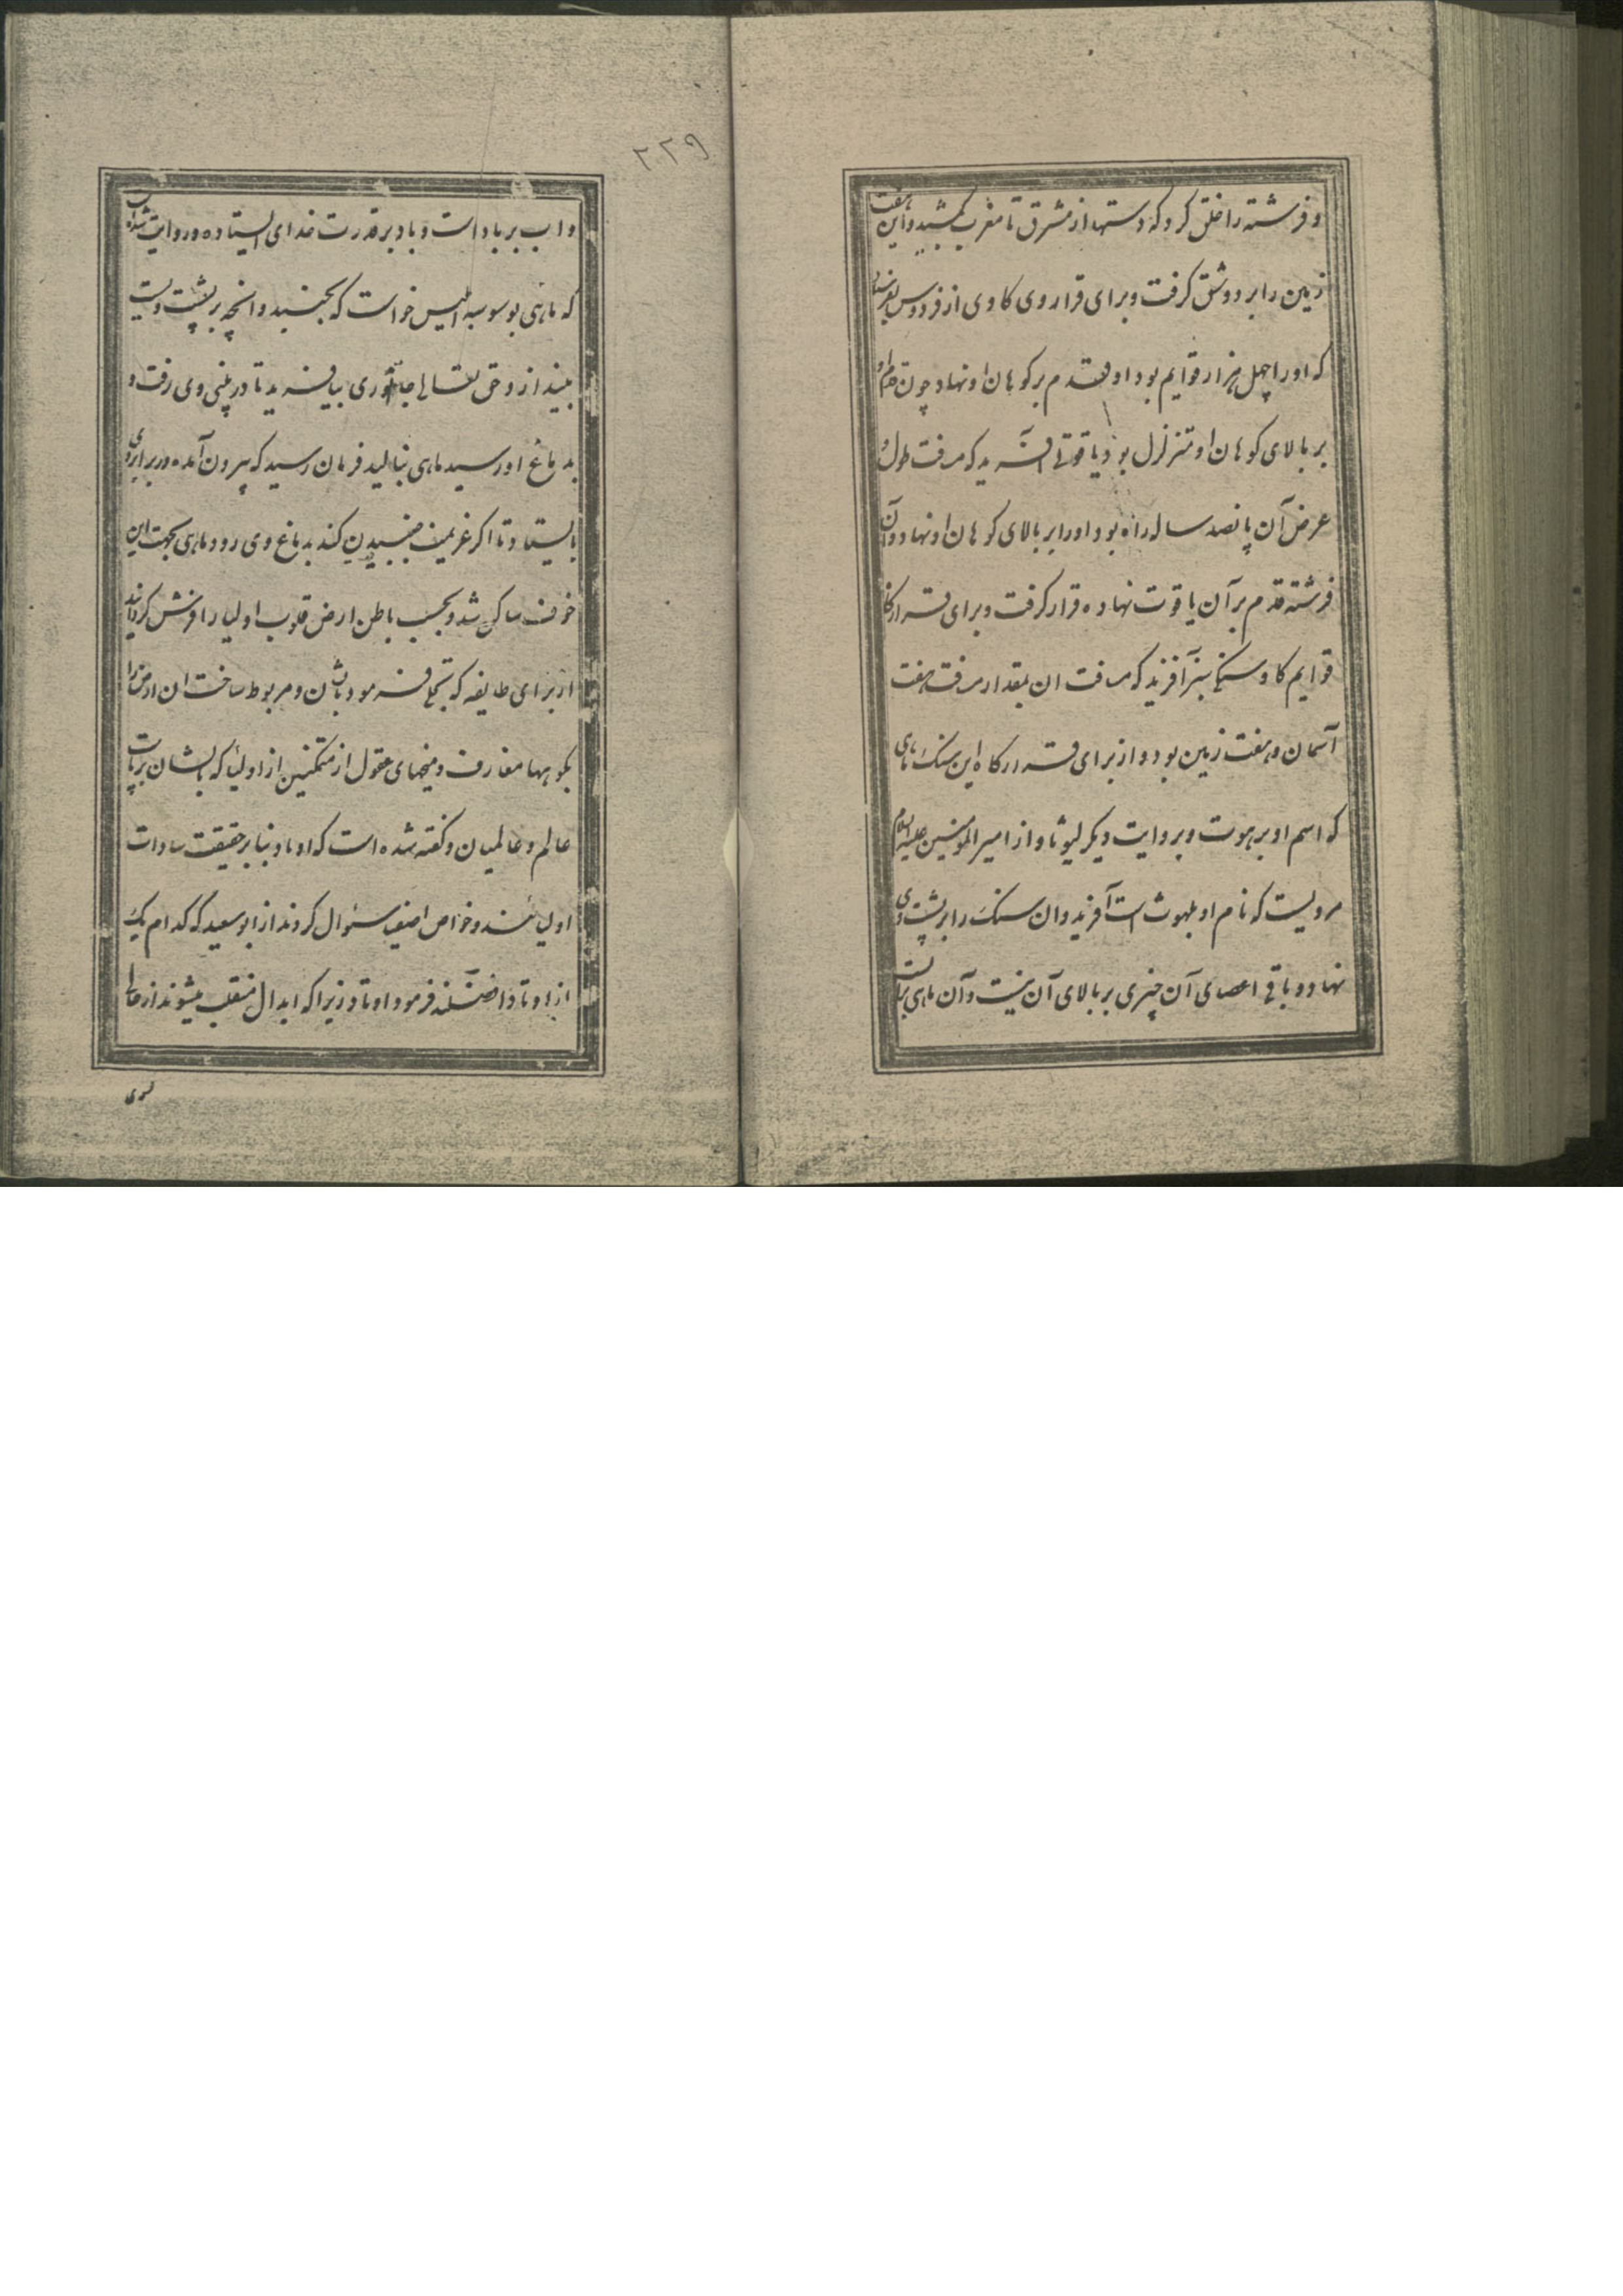 و فرشته را خلق کرد که دستها از مشرق تا مغرب کشید و این هفت
زمین را بر دوش گرفت و برای قرار وی کاوی از فردوس بفرستاد
که او را چهل هزار قوایم بود او قدم بر کوهان او نهاد چون قدم او
بر بالای کوهان او متزلزل بود یاقوتی آفرید که مسافت طول و
عرض آن پانصد ساله راه بود او را بر بالای کوهان او نهاد و آن
فرشته قدم بر آن یاقوت نهاده قرار گرفت و برای قرارگاه
قوایم کاو سنگی سبز آفرید که مسافت ان بمقدار مسافت هفت
آسمان و هفت زمین بود و از برای قرارگاه این سنگ ماهی
که اسم او برهوت و بروایت دیگر لیوثا و از امیر المومنین علیه السلام
مرویست که نام او بلهوث است آفرید و ان سنگ را بر پشت وی
نهاد و باقی اعضای آن چیزی بر بالای آن نیست و آن ماهی بر آبست
۲۲۹
و اب بر باد است و باد بر قدرت خدای ایستاده و روایت شده است
که ماهی بوسوسه ابلیس خواست که بجنبد و انچه بر پشت ویست
بیندازد حق تعالی جانوری بیافرید تا در بینی وی رفت و
بدماغ او رسید ماهی بنالید فرمان رسید که بیرون آمده در برابر وی
بایستاد تا اگر عزیمت جنبیدن کند بدماغ وی رود ماهی بجهت این
خوف ساکن شد و بحسب باطن ارض قلوب اولیا را فرش گردانید
از برای طایفه که تجلی فرمود باشان و مربوط ساخت ان ارض را
بکوهها معارف و میخهای عقول از متمکنین از اولیا که بایشان برپاست
عالم و عالمیان و گفته شده است که اوتاد بنا بر حقیقت سادات
اولیائند و خواص اصفیا سئوال کردند از ابو سعید که کدام یک
از اوتاد افضلند فرمود اوتاد زیرا که ابدال منقلب میشوند از حالی